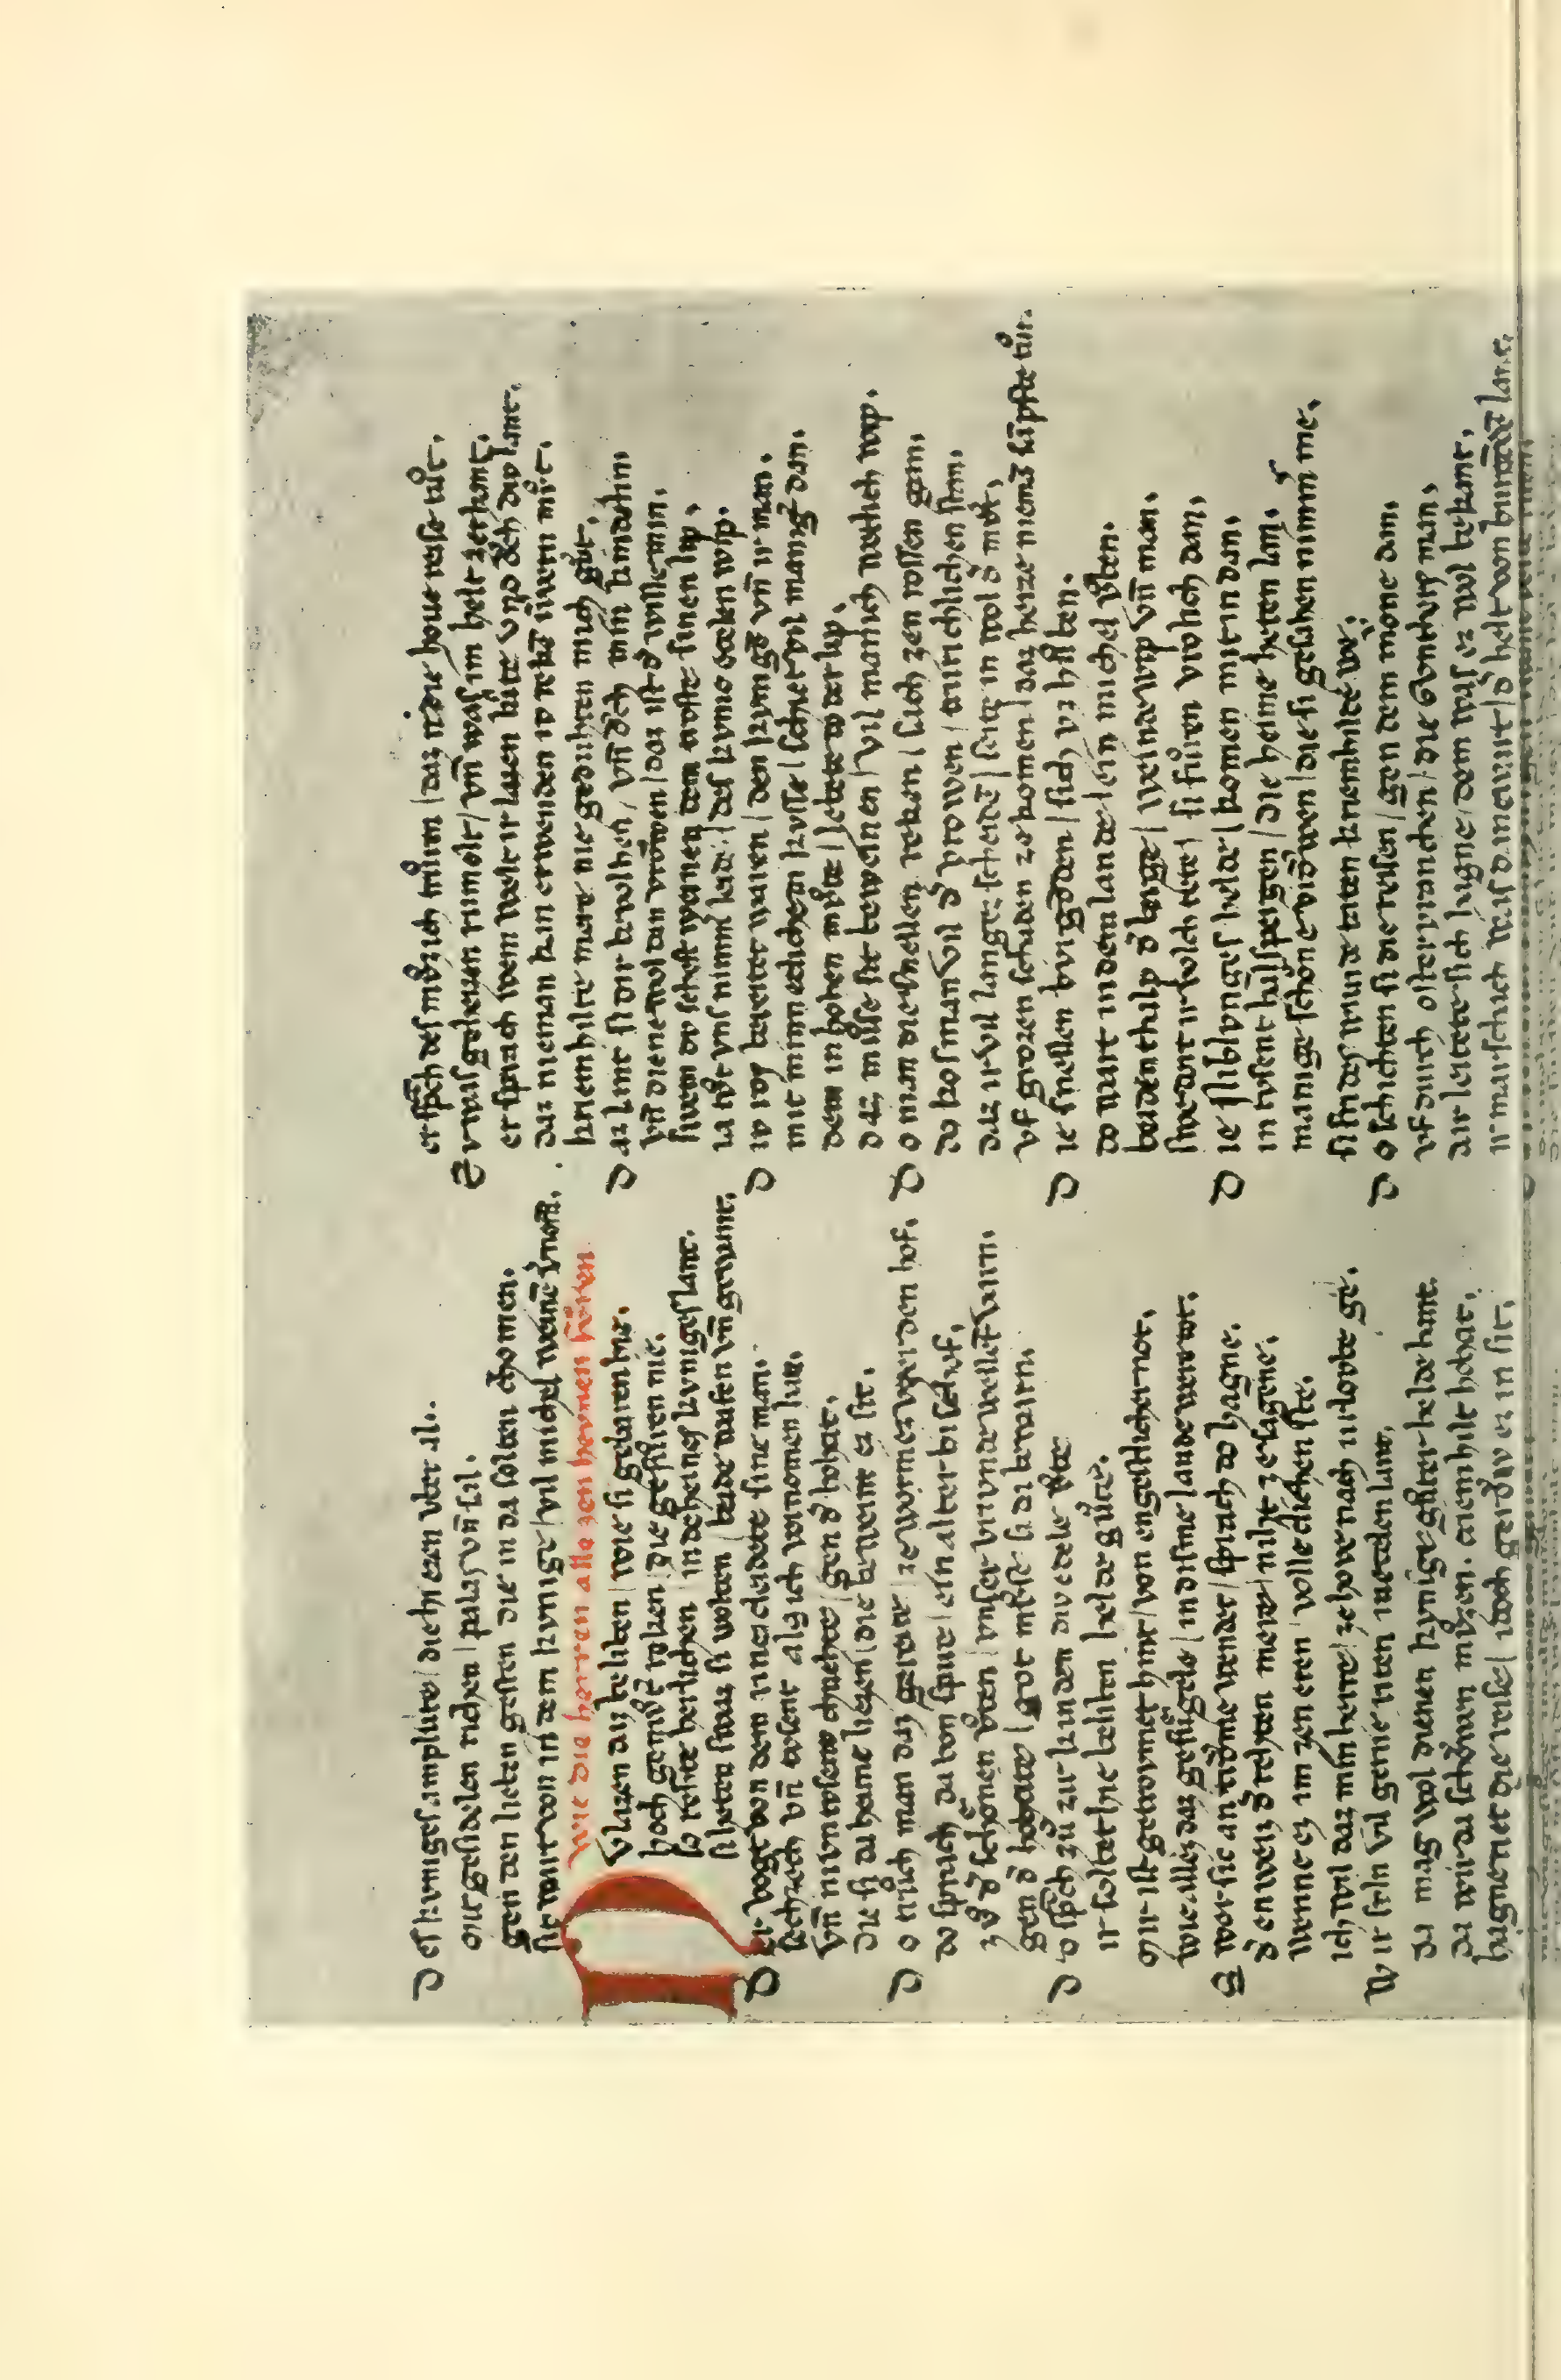 D es kvniges amplvte / die hiezen vber al.
mit gesidelen richen / palas vn̄ sal.
gen den lieben gesten die in da solten chomen.
sit wart von in dem kvnige / vil michel weinē v̓nom̄.
wie die herren alle zen hevnen fůren
N V lazen daz beliben / wie si gebaren hie.
hoch gemv̊t̓ reken / die gefůren nie.
so rehte herlichen / in deheines kvniges lant.
si heten swaz si wolten / beide wafen vn̄ gewant.
D er vogt von dem rine / cleidete sine man.
sechzech vn̄ tvsent als ich vernomen han.
vn̄ nivn tvsent chnehte / gen d̓ hohzit.
die si da heime liezen / die beweinten ez sit.
D o trůch man daz gereite / ze wormez vber den hof.
do sprach da von spire / ein alter bischof.
zv̊ d̓ schonen v̊ten / vnser vrivnde wellent varn.
gen d̓ hohzite / got můse si da bewarn.
D o spͣch zů zir kinden div edele v̊te
ir soltet hie beliben / helde gůte.
mir ist getrovmet hint / von engestlicher not.
wie allez daz gefůgele / in disme lande were tot.
S wer sich an trovme wendet / sprach do hagne.
d̓ enweiz d̓ rehten mere / niht ze sagene.
wenne ez im zen eren / volleclichen ste.
ich wil daz min herre / ze hove nach vrlovbe ge.
W ir svln vil gerne riten in etzelen lant.
da mag wol dienen kvnige / gůter helde hant.
da wir da schowen mvzen. criemhilt hohzit.
hagne riet die reise / idoch gerov ez in sit.
er spͣch des mv̊z ich mvͦin / daz ir die hove reise tůt.
E r was geheizen rvmolt / vn̄ was im helt zerhant.
er sprach wem welt ir lazen livte vn̄ och div lant.
daz nieman kan erwenden iv reken iwern mv̊t.
kriemhilte mere nie gedvhten mich gv̊t.
D az lant si dir bevolhen / vn̄ och min kindelin.
vn̄ diene wol den vrowen / daz ist d̓ wille min.
swem dv sehest weinen dem troste sinen lip.
ia tv̊t vns nimm̓ leide / des kvnic etzelen wip.
D iv ros bereitet waren / den kvnigen vn̄ ir man.
mit minneclichem kvsse / schiet vil maniger dan.
dem in hohen mv̊te / lebete do der lip.
daz mv̊se sit beweinen / vil manich wetlich wip.
D o man die snellen reken / sach zen rossen gan.
do kos man vil d̓ vrowen / trvrichlichen stan.
daz ir vil langez scheiden / seite in wol d̓ mv̊t.
vf grozen schaden ze komen / daz herze niem̄ sanfte tv̊t.
D ie snellen bvrgonden / sich vz hv̊ben.
do wart in dem lande / ein michel v̊ben.
beidenthalp d̓ berge / weinde wip vn̄ man.
swie dort ir volch tete / si fůren vrolich dan.
D ie niblvnges helde / komen mit in dan.
in tvsent halspergen / die heime heten lan,
manige schone vrowen / die si gesahen nimm̓ me.
sifrides wunde taten kriemhilte we.
D o schichten si die reisen / gen dem mone dan.
vf dvrch oster vranchen / die Gvnthers man.
dar leitete sich hagne / dem was ez wol bekant.
ir marschalch was danchwart / d̓ helt von bvrgonden lant.